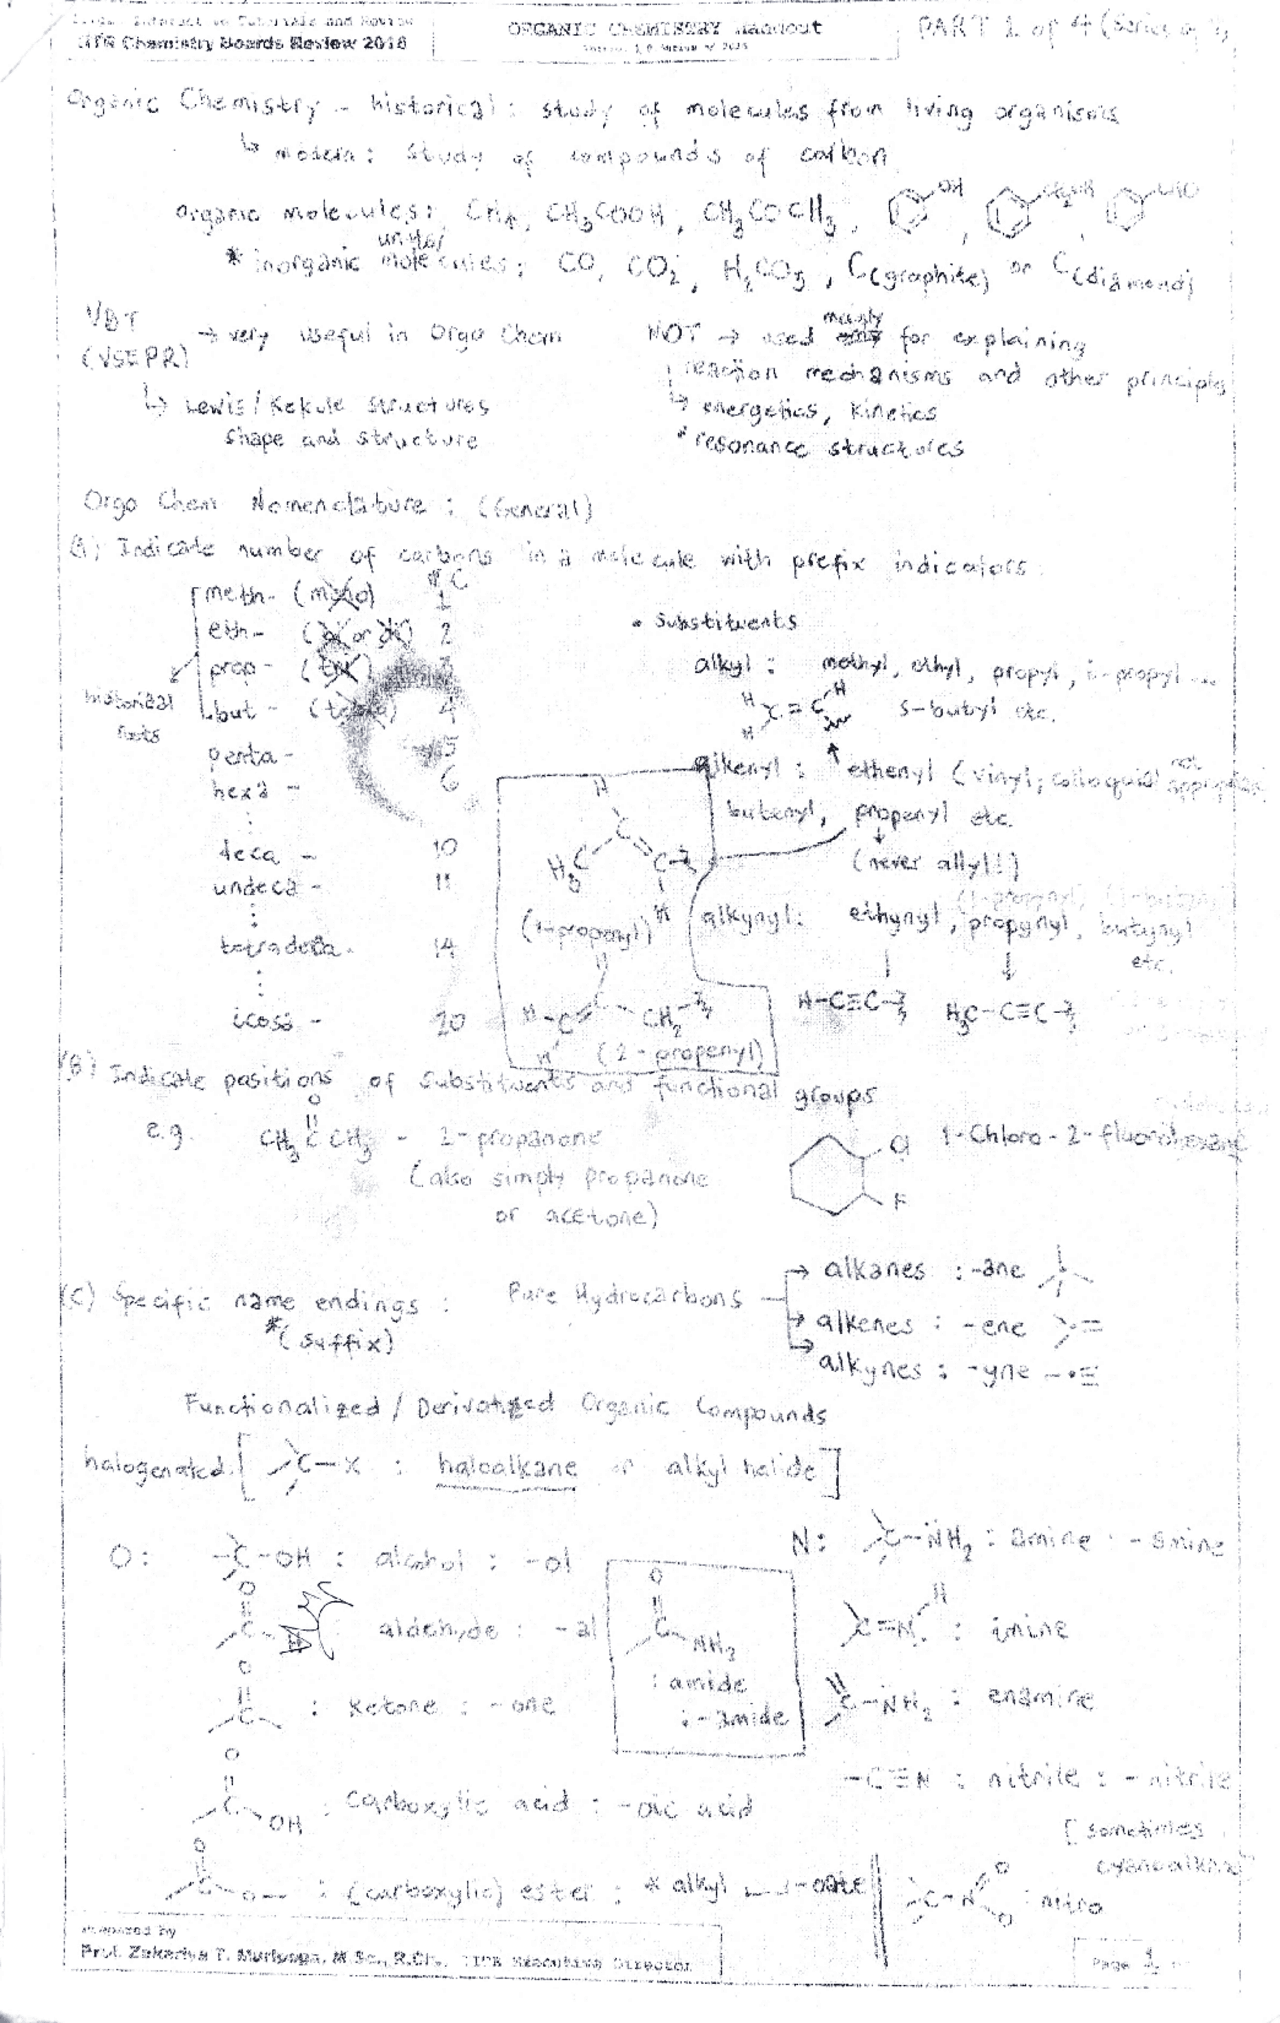 ITR Chemistry Boards Review 2016
ORGANIC CHEMISTRY Handout
PART 1 of 4 (Series of
Organic Chemistry - historical: study of molecules from living organisms
↳ modern: study of compounds of carbon
organic molecules: CH4, CH3COOH, CH3COCH3, OH
* inorganic molecules: CO, CO2, H2CO3, C(graphite) or C(diamond)
VBT
(VSEPR)
→ very useful in Orgo Chem
↳ Lewis/Kekule structures
shape and structure
mainly
NOT → used for explaining
reaction mechanisms and other principles
↳ energetics, kinetics
* resonance structures
Orgo Chem Nomenclature: (General)
A) Indicate number of carbons in a molecule with prefix indicators:
# C
meth- (mono) 1
eth- 2
prop- (tri) 3
but- (tetra) 4
historical
penta- 5
hexa- 6
deca- 10
undeca- 11
tetradeca- 14
icosa- 20
• Substituents
alkyl: methyl, ethyl, propyl, i-propyl ...
s-butyl etc.
H H C=C H
alkenyl: ethenyl (vinyl; colloquial not
butenyl, propenyl etc.
(never allyl!)
H H3C C=C H
(1-propenyl)
H-C CH2
H
(2-propenyl)
alkynyl: ethynyl, propynyl, butynyl
etc.
H-C≡C- H3C-C≡C-
(B) Indicate positions of substituents and functional groups
e.g. CH3CCH3 - 2-propanone
O
(also simply propanone
or acetone)
Cl
F
1-Chloro-2-fluorohexane
(C) Specific name endings:
*(suffix)
Pure Hydrocarbons
→ alkanes: -ane
→ alkenes: -ene
→ alkynes: -yne
Functionalized / Derivatized Organic Compounds
halogenated [ C-X : haloalkane or alkyl halide ]
O: -C-OH : alcohol : -ol
O C H : aldehyde : -al
O C : ketone : -one
O C OH : carboxylic acid : -oic acid
O C O- : (carboxylic) ester : * alkyl -oate
O C NH3
: amide
: -amide
N: C-NH2 : amine : -amine
H
C=N : imine
C-NH2 : enamine
-C≡N : nitrile : -nitrile
[sometimes
C-N O O : nitro
Prepared by
Executive Director
Page 1